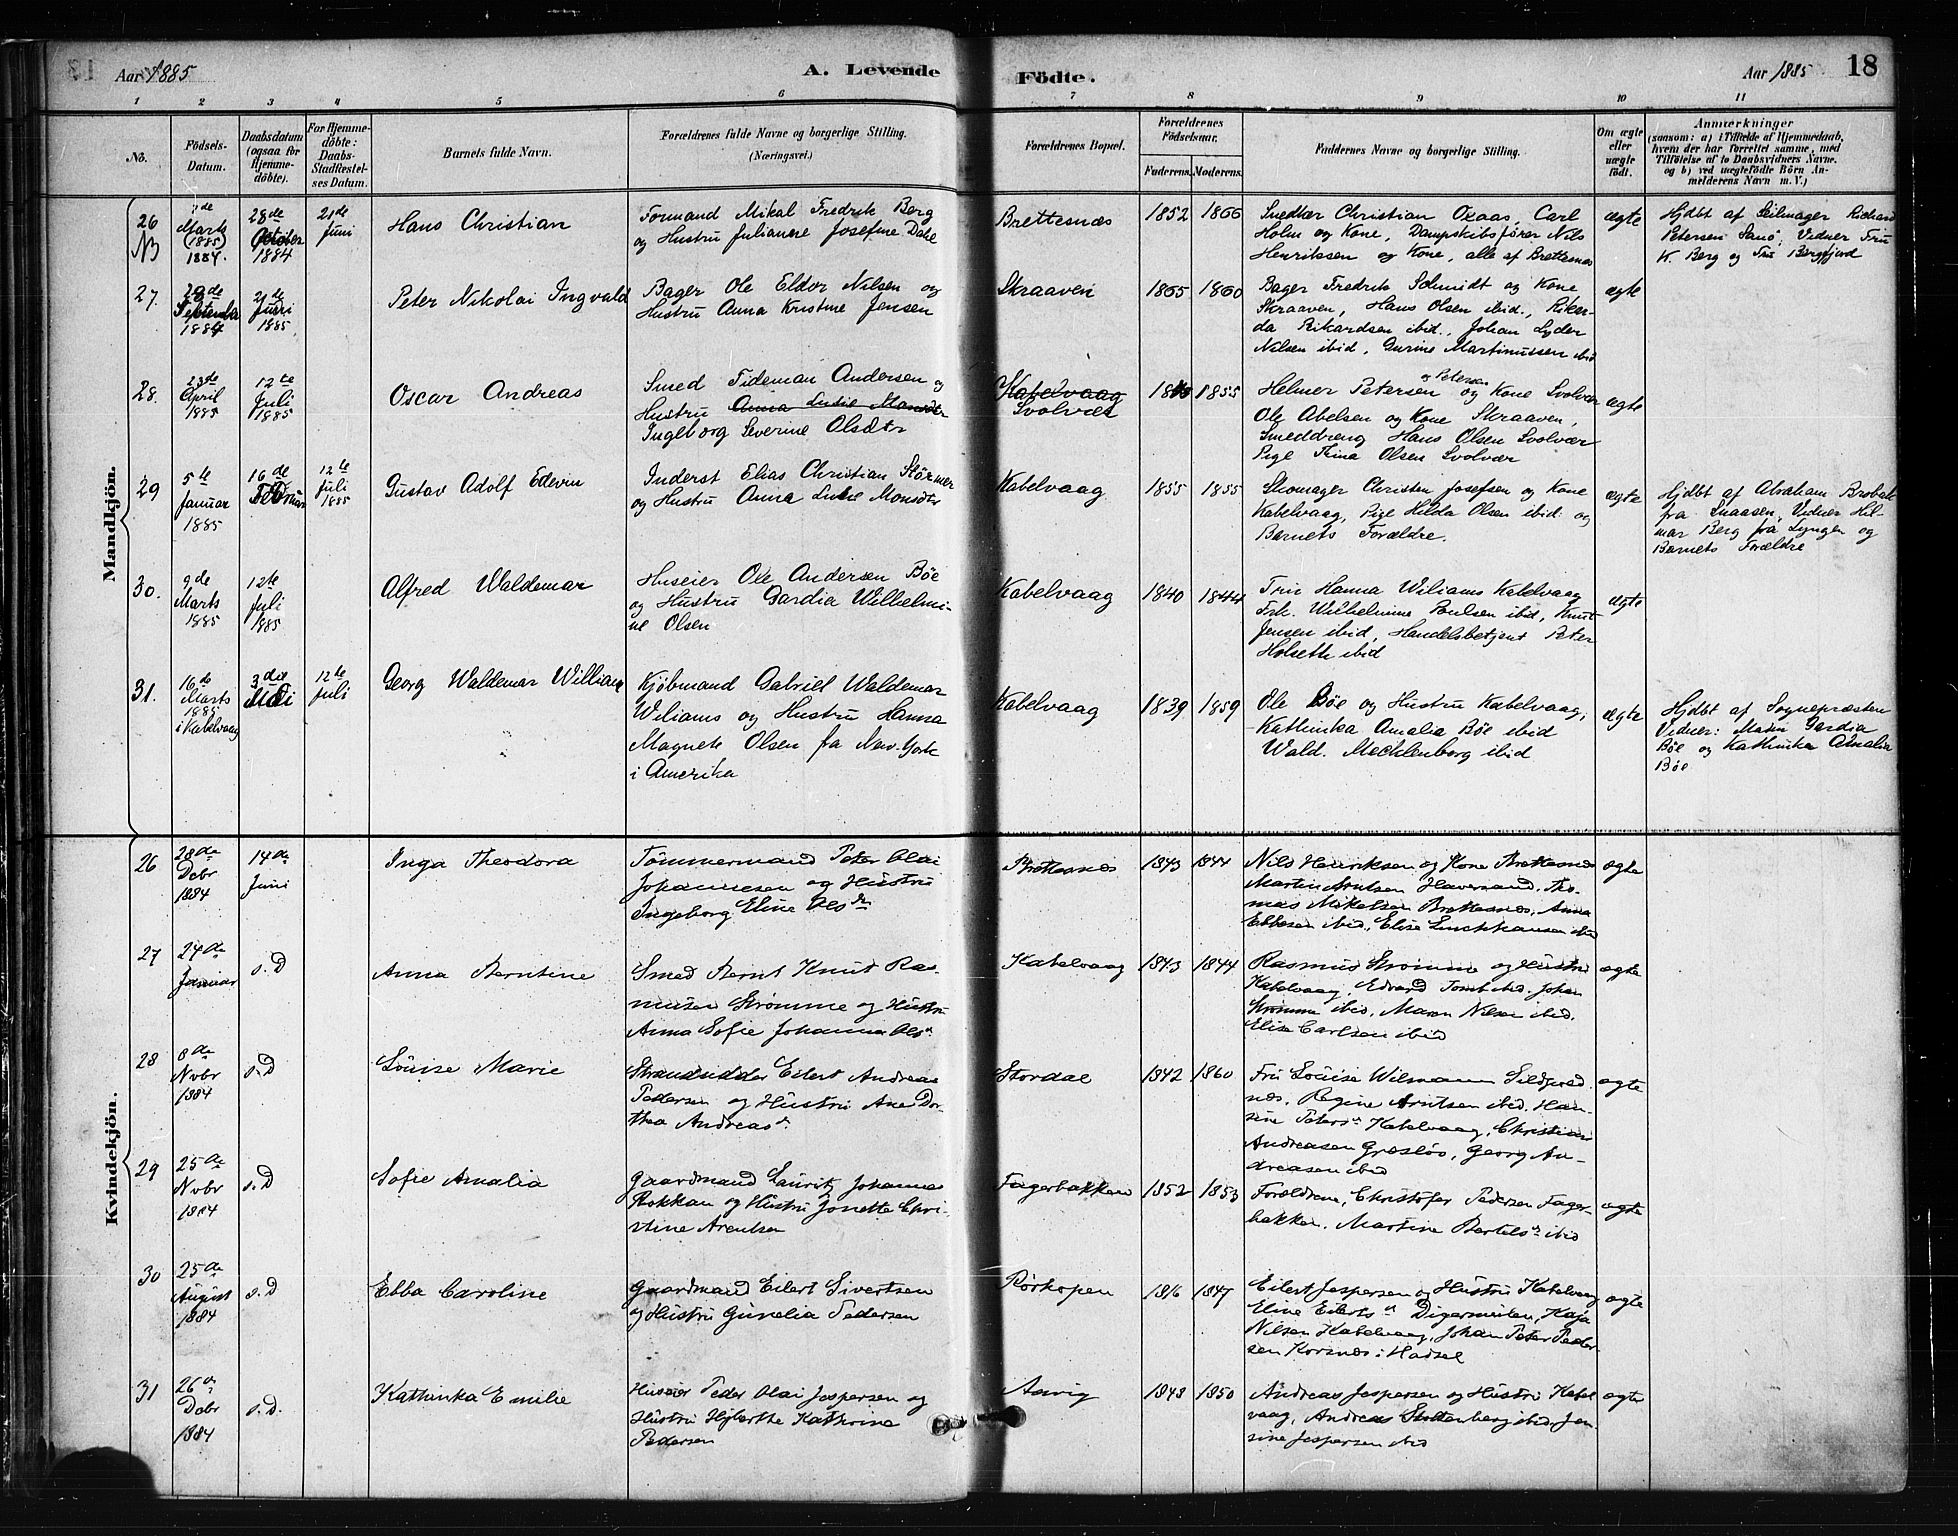 Aar 1885 A. Levende Födte. Aar 1885 18
1 2 3 4 5 6 7 8 9 10 11
No.
Födsels-
Datum.
Daabsdatum
(ogsaa for
Hjemme-
döbte).
For Hjemme-
döbte:
Daabs-
Stadfæstel-
ses Datum.
Barnets fulde Navn.
Forældrenes fulde Navne og borgerlige Stilling.
(Næringsvei.)
Forældrenes Bopæl.
Forældrenes
Födselsaar.
Faderens. Moderens.
Faddernes Navne og borgerlige Stilling.
Om ægte
eller
uægte
födt.
Anmærkninger
(saasom: a) i Tilfælde af Hjemmedaab,
hvem der har forrettet samme, med
Tilföielse af to Daabsvidners Navne,
og b) ved uægtefödte Börn An-
melderens Navn m. V.)
Mandkjön.
26
NB
Marts
(1885)
1884.
28de
October
1884
21de
Juni
Hans Christian
Formand Mikal Fredrik Berg
og Hustru Julianne Josefine Dahl
Brettesnæs
1852 1866
Snedker Christian Oxaas, Carl
Holm og Kone, Dampskibsfører Nils
Henriksen og Kone, alle af Brettesnæs
ægte
Hjdbt af Seilmager Richard
Petersen Sanö; Vidner Fru
K. Berg og Fru Bergfjord
27.
29de
September
1884
21de
Juni
1885
Peter Nikolai Ingvald
Bager Ole Eldor Nilsen og
Hustru Anna Kristine Jensen
Skraaven
1865 1860
Bager Fredrik Schmidt og Kone
Skraaven, Hans Olsen ibid., Rikar-
da Rikardsen ibid., Johan Lyder
Nilsen ibid, Gurine Martinussen ibid
ægte
28.
23de
April
1885
12te
Juli
1885
Oscar Andreas
Smed Tideman Andersen og
Hustru Anna Lusie Monsdtr
Ingeborg Severine Olsdtr
Kabelvaag
Svolvær
1855
og Petersen
Helmer Petersen og Kone Svolvær
Ole Abelsen og Kone Skraaven,
Smeddreng Hans Olsen Svolvær
Pige Trina Olsen Svolvær
ægte
29
5te
Januar
1885
16de
Februar
12te
Juli
1885
Gustav Adolf Edevin
Inderst Elias Christian Störmer
og Hustru Anna Lusie Monsdtr
Kabelvaag
1855 1855
Skomager Christen Josefsen og Kone
Kabelvaag, Pige Hilda Olsen ibid. og
Barnets Forældre.
ægte
Hjdbt af Abraham Brobak
fra Snaasen, Vidner Hil-
mar Berg fra Lyngen og
Barnets Forældre
30.
9de
Marts
1885
12te
Juli
1885
Alfred Waldemar
Huseier Ole Andersen Böe
og Hustru Gardia Wilhelmi-
ne Olsen
Kabelvaag
1840 1844
Fru Hanna Wiliams Kabelvaag
Frk. Wilhelmine Poulsen ibid, Knut
Jensen ibid, Handelsbetjent Peter
Holseth ibid
ægte
31.
16de
Marts
1885
i Kabelvaag
3die
Mai
12te
Juli
Georg Waldemar William
Kjöbmand Gabriel Waldemar
Wiliams og Hustru Hanna
Magnete Olsen fra New-York
i Amerika
Kabelvaag
1839 1859
Ole Böe og Hustru Kabelvaag,
Kathinka Amalia Böe ibid
Wald. Mecklenborg ibid
ægte
Hjdbt af Sognepræsten
Vidner: Maria Gardia
Böe og Kathinka Amalia
Böe
Kvindekjön.
26
28de
Debr
1884
14de
Juni
Inga Theodora
Tømmermand Peter Olai
Johannesen og Hustru
Ingeborg Eline Olsdr
Brettesnæs
1843 1844
Nils Henriksen og Kone Brettesnæs
Martin Arntsen Haversand, Tho-
mas Mikelsen Brettesnæs, Anna
Ebbesen ibid, Elise ibid
ægte
27
24de
Januar
s. D
Anna Berntine
Smed Bernt Knut Ras-
musen Strømme og Hustru
Anna Sofie Johanna Olsd.
Kabelvaag
1843 1844
Rasmus Strømme og Hustru
Kabelvaag, Edvard ibid. Johan
Strømme ibid, Maren Nilsen ibid.
Elise Carlsen ibid
ægte
28
8de
Novbr
1884
s. D
Louise Marie
Strandsidder Eilert Andreas
Pedersen og Hustru Ane Dor-
thea Andreasd.
Stordal
1842 1860
Fru Louise Wilmann Sildpold-
næs, Regine Arntsen ibid. Han-
sine Petersd Kabelvaag, Christian
Andreasen Græsløs, Georg An-
dreasen ibid
ægte
29
25de
Novbr
1884
s. D
Sofie Amalia
Gaardmand Lauritz Johannes
Rokkan og Hustru Jonette Chri-
stine Arentsen
Fagerbakken
1852 1853
Forældrene, Christofer Pedersen Fager-
bakken, Martine Bertelsd ibid
ægte
30
25de
August
1884
s. D
Ebba Caroline
Gaardmand Eilert Sivertsen
og Hustru Gunelia Pedersen
Rörhopen
1816 1847
Eilert Jespersen og Hustru Kabelvaag
Eline Eilertsd Digermulen, Kaja
Nilsen Kabelvaag, Johan Peter Peder-
sen Korsnæs i Hadsel
ægte
31
26d
Debr
1884
s. D.
Kathinka Emilie
Huseier Peder Olai Jespersen og
Hustru Hjberthe Kathrine
Pedersen
Aavig
1848 1850
Andreas Jespersen og Hustru Kabel
vaag, Andreas Stoltenberg ibid, Jen
sine Jespersen ibid
ægte